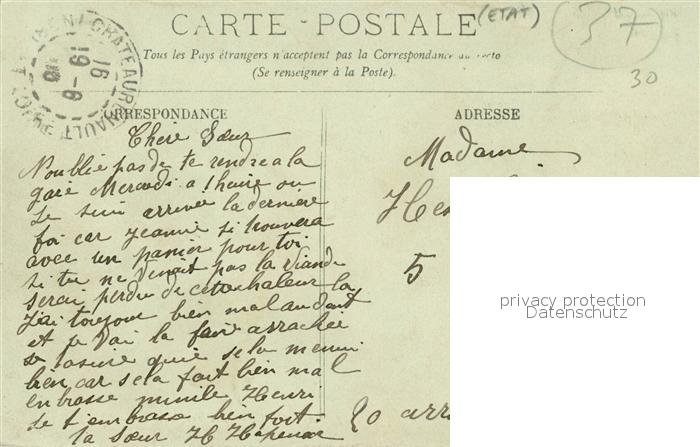 CARTE - POSTALE
(ETAT)
37
30
Tous les Pays étrangers n'acceptent pas la Correspondance au recto
(Se renseigner à la Poste).
CHATEAURENAULT
16 19 -6
CORRESPONDANCE
ADRESSE
Chere Sœur
N'oublie pas de te rendre a la
gare Mercredi a 1 heure ou
Je suis arrivée la derniere
foi car Jeanne si trouvera
avec un panier pour toi
si tu ne venait pas la viande
serai perdu de cete chaleur la
J'ai toujour bien mal au dent
et je vai la faire arrachée
bien car sela fait bien mal
en brasse mimile Henri
Je t'embrasse bien fort
ta Sœur H
Madame
5
20 arr
privacy protection
Datenschutz